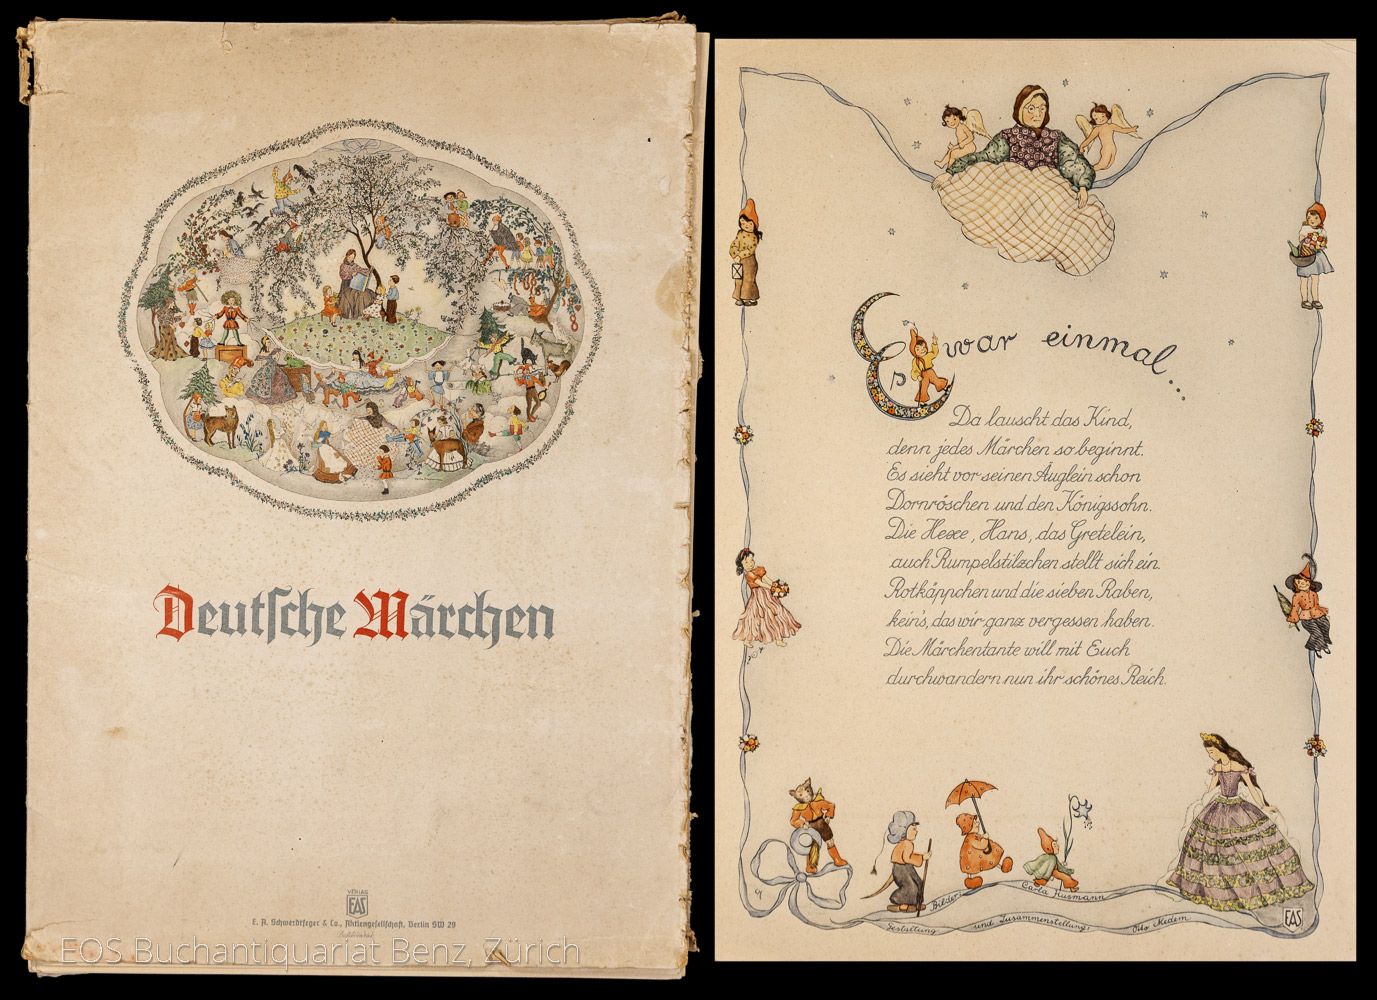 Deutsche Märchen
VERLAG
EAS
E. A. Schwerdtfeger & Co., Aktiengesellschaft, Berlin SW 29
EOS Buchantiquariat Benz, Zürich
Es war einmal...
Da lauscht das Kind,
denn jedes Märchen so beginnt.
Es sieht vor seinen Äuglein schon
Dornröschen und den Königssohn.
Die Hexe, Hans, das Gretelein,
auch Rumpelstilzchen stellt sich ein.
Rotkäppchen und die sieben Raben,
kein's, das wir ganz vergessen haben.
Die Märchentante will mit Euch
durchwandern nun ihr schönes Reich.
Bilder: Carla Husmann
Gestaltung und Zusammenstellung: Otto Medem
EAS